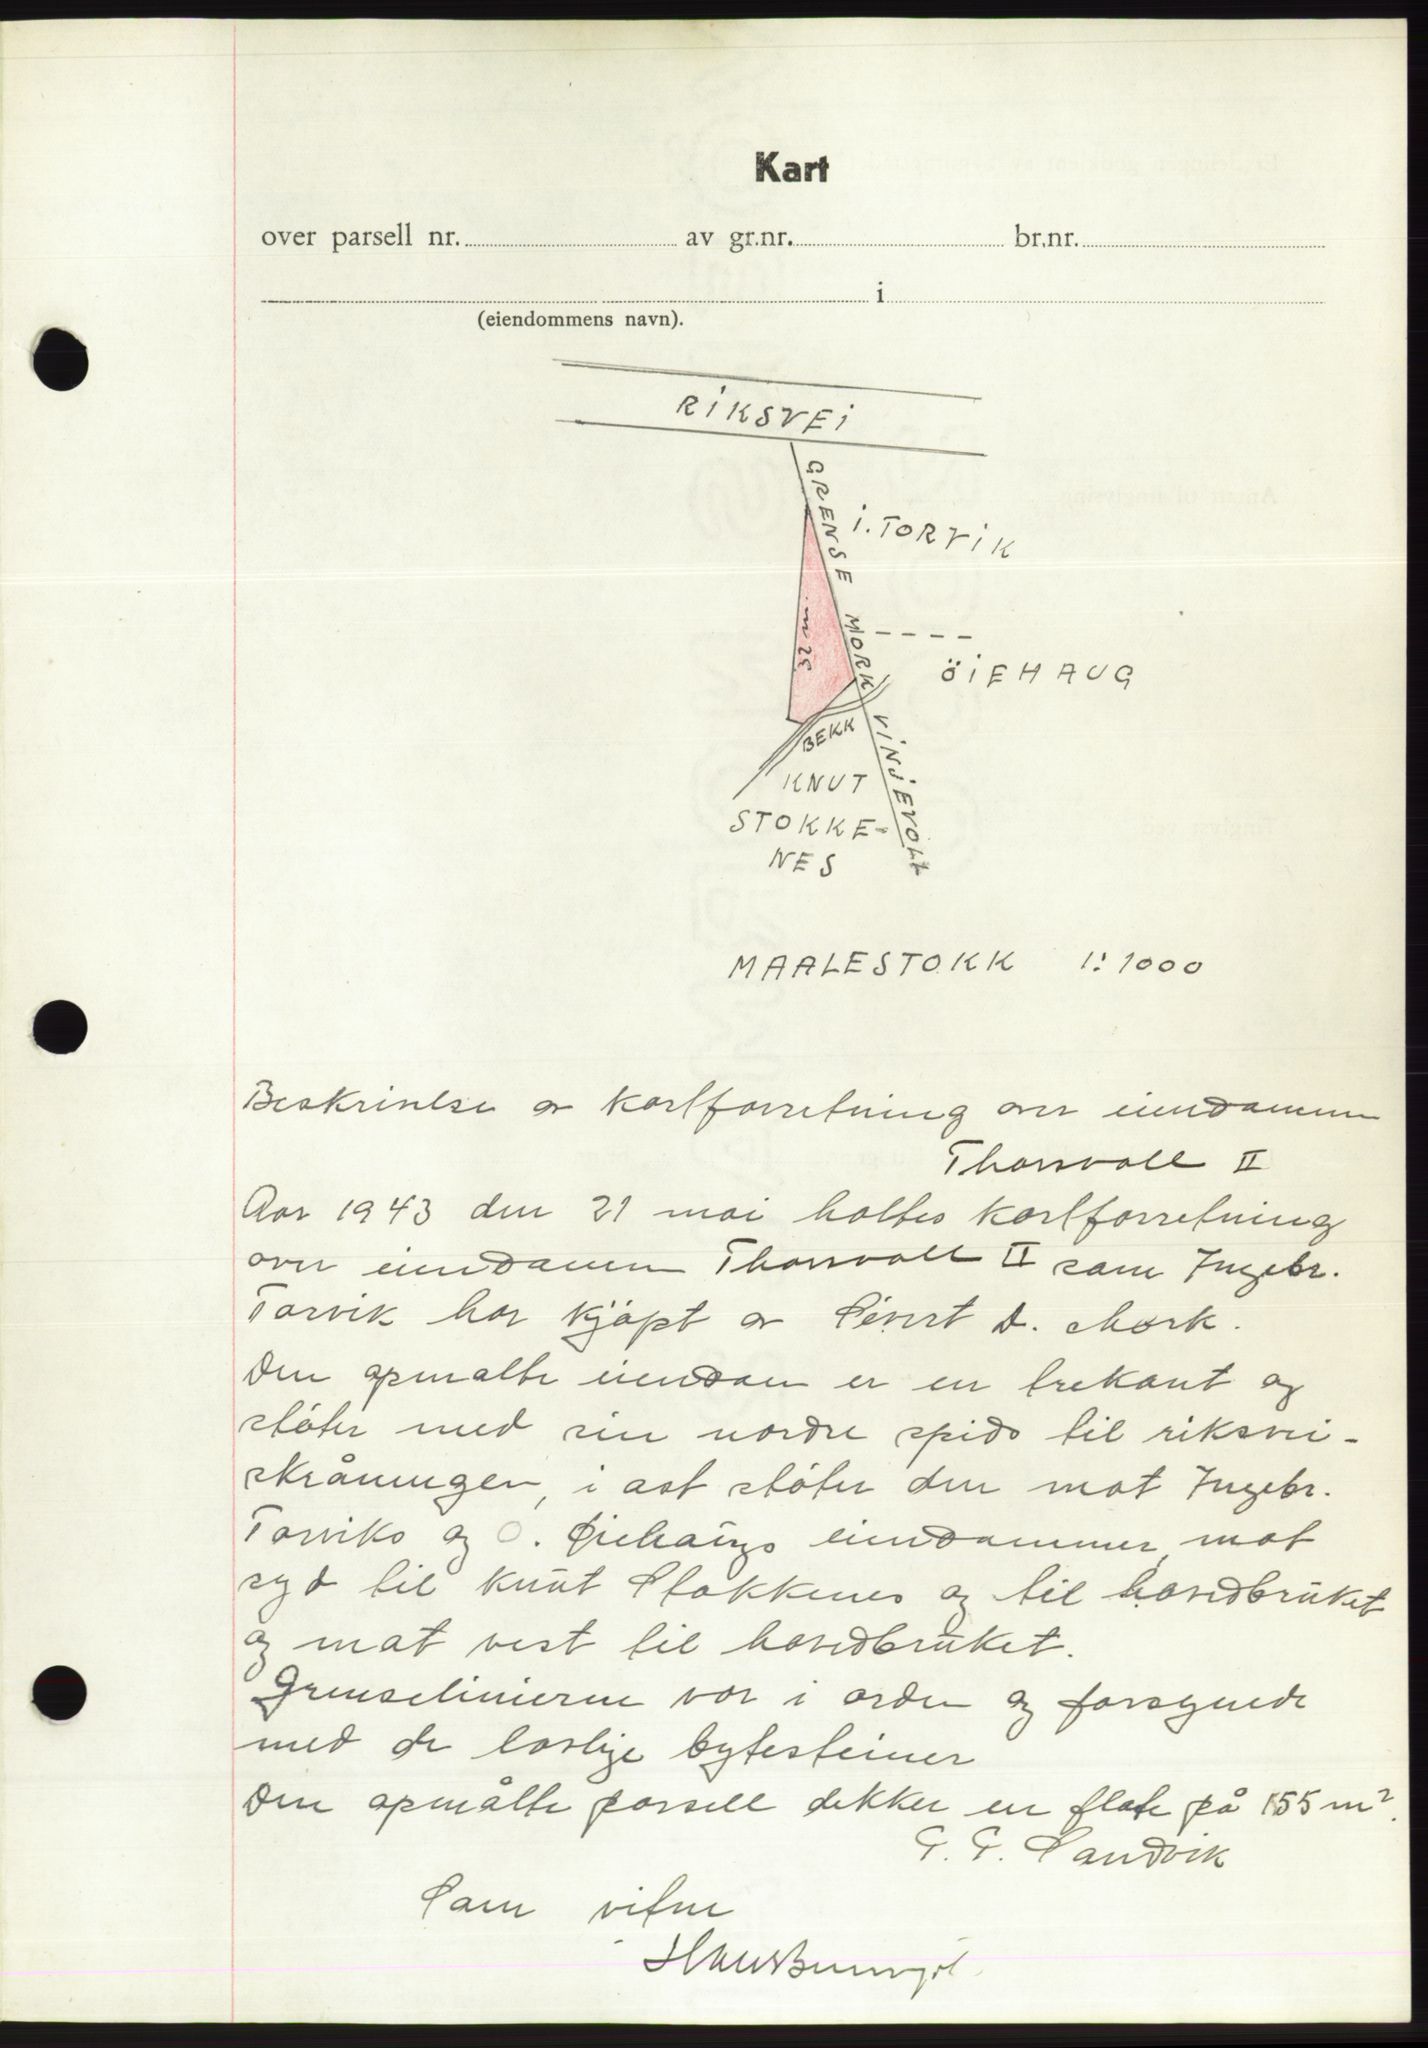 Kart
over parsell nr. av gr.nr. br.nr.
i
(eiendommens navn).
RIKSVEI
GRENSE MORK VINJEVOLL
I. TORVIK
m 25
ÖIEHAUG
BEKK
KNUT
STOKKE-
NES
MAALESTOKK 1:1000
Beskrivelse av kartforretning over eiendommen
Thorsvoll II
Aar 1943 den 21 mai holtes kartforretning
over eiendommen Thorsvoll II som Ingebr.
Torvik har kjøpt av Sivert D. Mork.
Den opmålte eiendom er en trekant og
støter med sin nordre spids til riksvei-
skråningen, i øst støter den mot Ingebr.
Torviks og O. Øiehaugs eiendommer, mot
syd til Knut Stokkenes og til hovedbruket
og mot vest til hovedbruket.
Grenselinierne var i orden og forsynede
med de lovlige bytesteiner
Den opmålte parsell dekker en flate på 155 m².
Sandvik
Som vitne